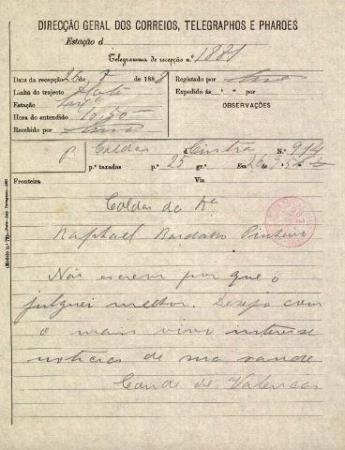 DIRECÇÃO GERAL DOS CORREIOS, TELEGRAPHOS E PHAROES
Estação d
Telegramma de recepção n.º 1881
Data da recepção 26 / 9 de 1888
Registado por
Linha do trajecto
Expedido ás " " por
Estação
OBSERVAÇÕES
Hora do entendido 10,50
Recebido por
P. Caldas d Cintra N.º 914
p. taxadas p. 25 gr. Em 26, 9,
Fronteira Via
Caldas da Ra
Raphael Bordallo Pinheiro
Não escrevi por que o
julguei melhor. Desejo com
o mais vivo interesse
noticias de sua saude
Conde de Valenças